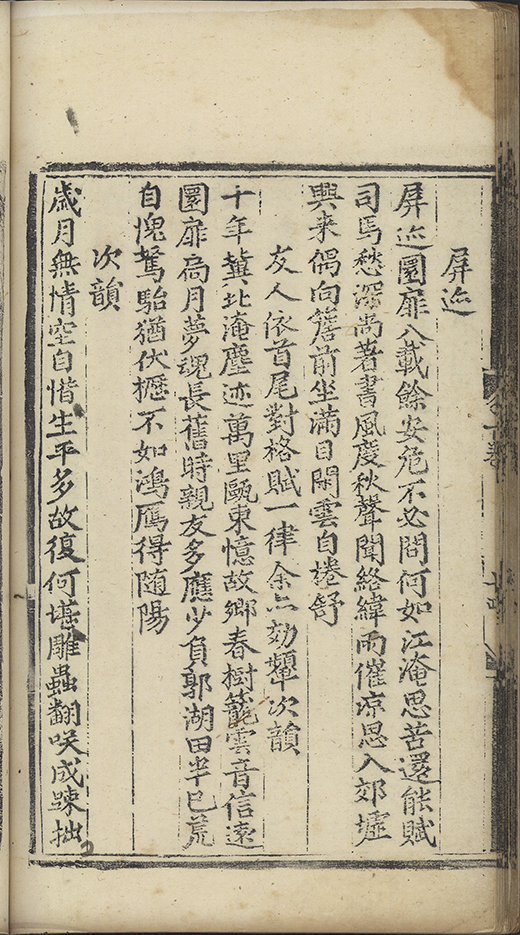 屏迹
屏迹園扉八載餘安危不必問何如江淹思苦還能賦
司馬愁深尚著書風度秋聲聞絡緯雨催涼思入郊墟
興来偶向簷前坐滿目閑雲自捲舒
友人依首尾對格賦一律余亦効顰次韻
十年冀北淹塵迹萬里甌東憶故鄉春樹籠雲音信遠
園扉高月夢魂長舊時親友多應少負郭湖田半已荒
自愧駑駘猶伏櫪不如鴻鴈得随陽
次韻
歲月無情空自惜生平多故復何堪雕蟲翻咲成踈拙